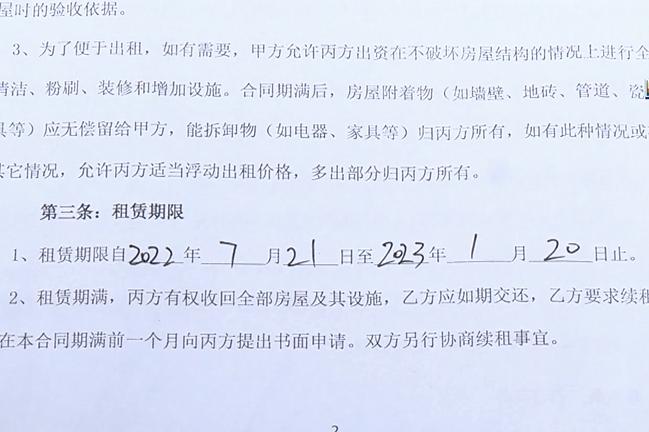 屋时的验收依据。
3、为了便于出租，如有需要，甲方允许丙方出资在不破坏房屋结构的情况上进行全
清洁、粉刷、装修和增加设施。合同期满后，房屋附着物（如墙壁、地砖、管道、瓷
具等）应无偿留给甲方，能拆卸物（如电器、家具等）归丙方所有，如有此种情况或
其它情况，允许丙方适当浮动出租价格，多出部分归丙方所有。
第三条：租赁期限
1、租赁期限自2022年7月21日至2023年1月20日止。
2、租赁期满，丙方有权收回全部房屋及其设施，乙方应如期交还，乙方要求续租
在本合同期满前一个月向丙方提出书面申请。双方另行协商续租事宜。
2